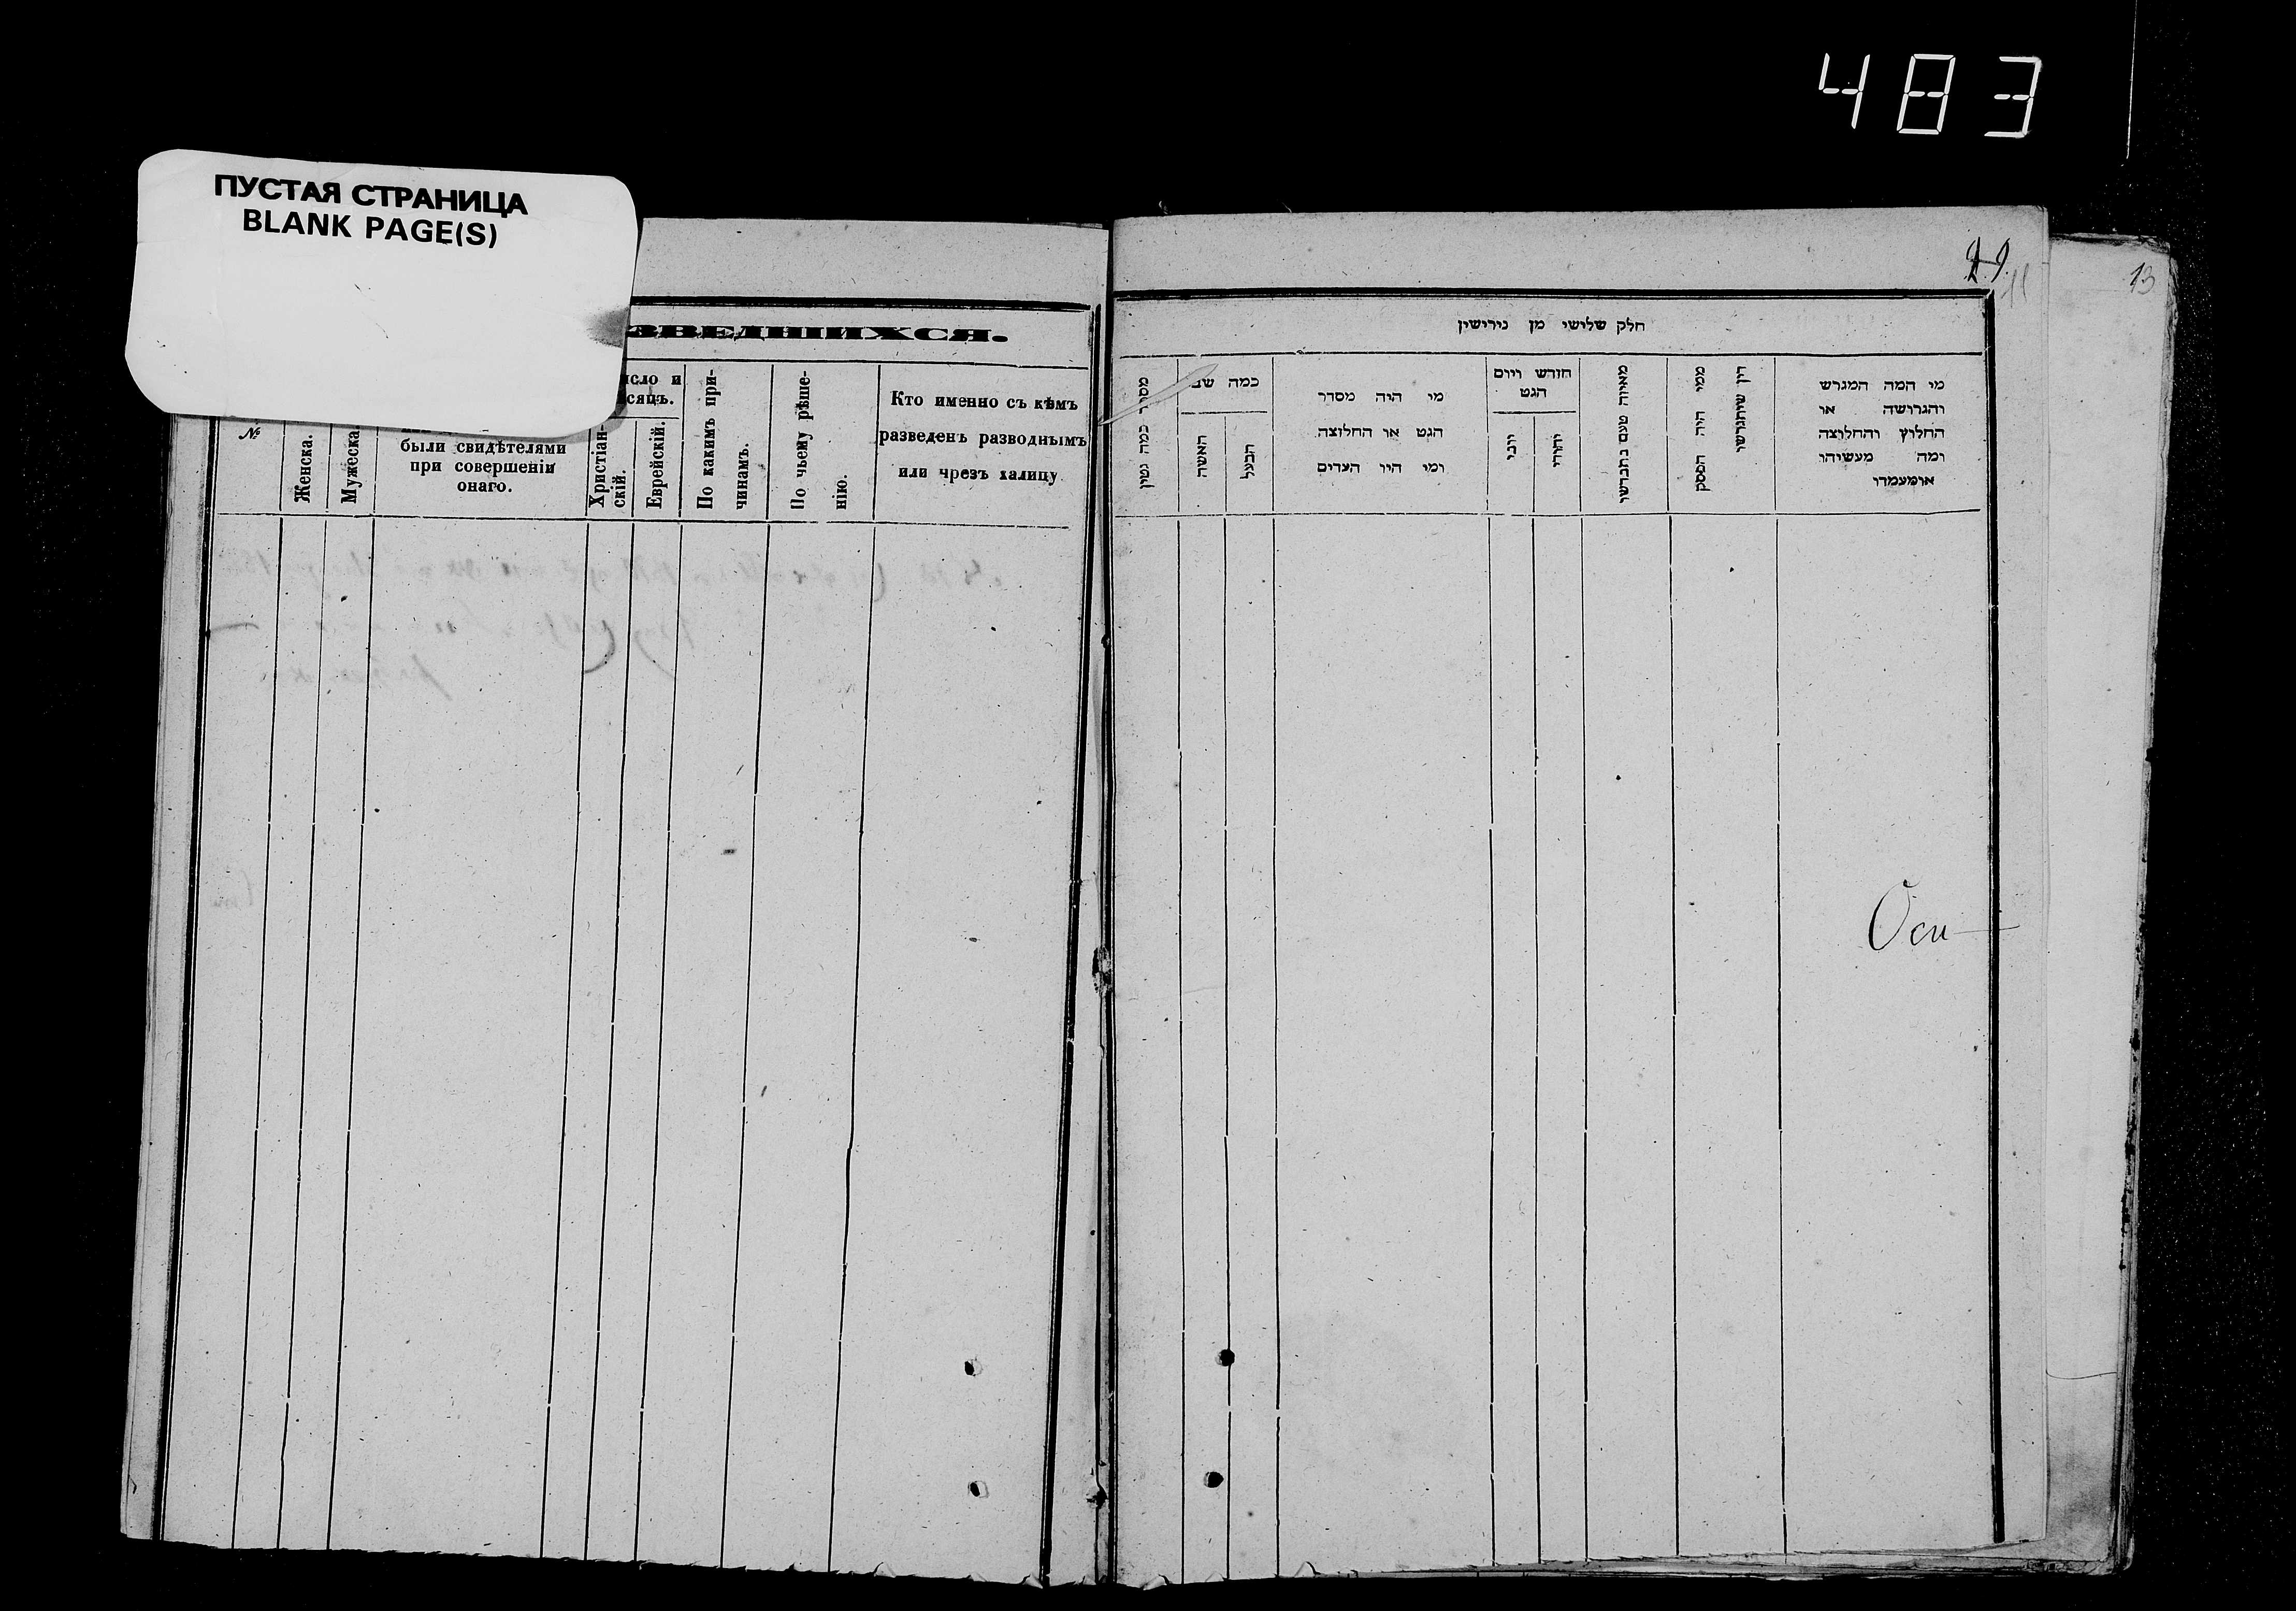 483
ПУСТАЯ СТРАНИЦА
BLANK PAGE(S)
ЗВЕДШИХСЯ.
№
Женска.
Мужеска.
были свидѣтелями
при совершеніи
онаго.
сло и
сяцъ.
Христіан-
скій.
Еврейскій.
По какимъ при-
чинамъ.
По чьему рѣше-
нію.
Кто именно съ кѣмъ
разведенъ разводнымъ
или чрезъ халицу
13
חלק שלישי מן גירושין
מספר כמה גטין
כמה שנ
האשה
הבעל
מי היה מסדר
הגט או החלוצה
ומי היו העדים
חודש ויום
הגט
יוני
יהודי
מאיזה טעם נתגרשו
ממי היה הפסק
דין שיתגרשו
מי המה המגרש
והגרושה או
החלוץ והחלוצה
ומה מעשיהו
ומעמדו
Оси